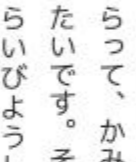 らって、かみ
たいです。そ
らいびょうし